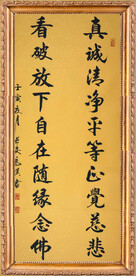 真诚清净平等正覺慈悲
看破放下自在随緣念佛
壬寅年月